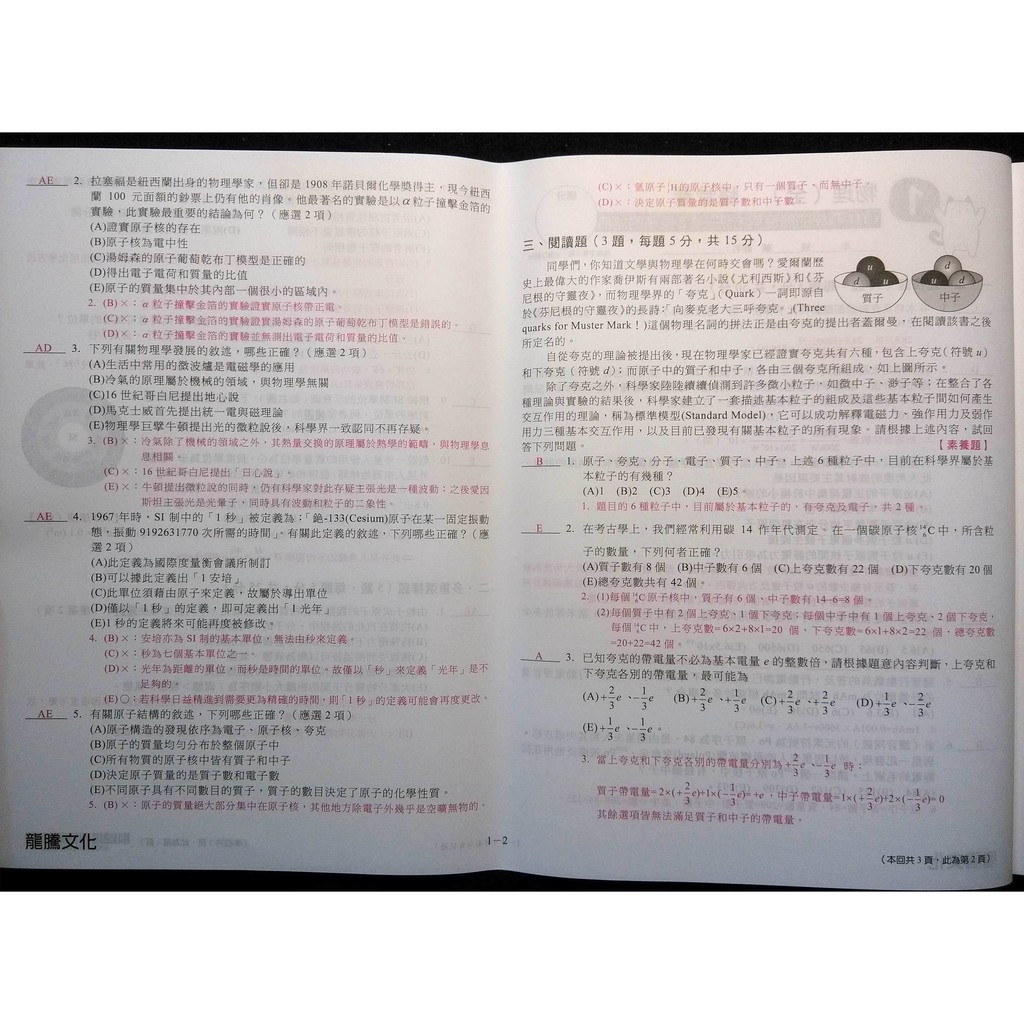 AE 2. 拉塞福是紐西蘭出身的物理學家，但卻是 1908 年諾貝爾化學獎得主，現今紐西
蘭 100 元面額的鈔票上仍有他的肖像。他最著名的實驗是以α粒子撞擊金箔的
實驗，此實驗最重要的結論為何？（應選 2 項）
(A)證實原子核的存在
(B)原子核為電中性
(C)湯姆森的原子葡萄乾布丁模型是正確的
(D)得出電子電荷和質量的比值
(E)原子的質量集中於其內部一個很小的區域內。
2. (B)×：α粒子撞擊金箔的實驗證實原子核帶正電。
(C)×：α粒子撞擊金箔的實驗證實湯姆森的原子葡萄乾布丁模型是錯誤的。
(D)×：α粒子撞擊金箔的實驗並無測出電子電荷和質量的比值。
AD 3. 下列有關物理學發展的敘述，哪些正確？（應選 2 項）
(A)生活中常用的微波爐是電磁學的應用
(B)冷氣的原理屬於機械的領域，與物理學無關
(C)16 世紀哥白尼提出地心說
(D)馬克士威首先提出統一電與磁理論
(E)物理學巨擘牛頓提出光的微粒說後，科學界一致認同不再存疑。
3. (B)×：冷氣除了機械的領域之外，其熱量交換的原理屬於熱學的範疇，與物理學息
息相關。
(C)×：16 世紀哥白尼提出「日心說」。
(E)×：牛頓提出微粒說的同時，仍有科學家對此存疑主張光是一種波動；之後愛因
斯坦主張光是光量子，同時具有波動和粒子的二象性。
AE 4. 1967 年時，SI 制中的「1 秒」被定義為：「銫-133(Cesium)原子在某一固定振動
態，振動 9192631770 次所需的時間」。有關此定義的敘述，下列哪些正確？（應
選 2 項）
(A)此定義為國際度量衡會議所制訂
(B)可以據此定義出「1 安培」
(C)此單位須藉由原子來定義，故屬於導出單位
(D)僅以「1 秒」的定義，即可定義出「1 光年」
(E)1 秒的定義將來可能再度被修改。
4. (B)×：安培亦為 SI 制的基本單位，無法由秒來定義。
(C)×：秒為七個基本單位之一。
(D)×：光年為距離的單位，而秒是時間的單位。故僅以「秒」來定義「光年」是不
足夠的。
(E)○：若科學日益精進到需要更為精確的時間，則「1 秒」的定義可能會再度更改。
AE 5. 有關原子結構的敘述，下列哪些正確？（應選 2 項）
(A)原子構造的發現依序為電子、原子核、夸克
(B)原子的質量均勻分布於整個原子中
(C)所有物質的原子核中皆有質子和中子
(D)決定原子質量的是質子數和電子數
(E)不同原子具有不同數目的質子，質子的數目決定了原子的化學性質。
5. (B)×：原子的質量絕大部分集中在原子核，其他地方除電子外幾乎是空曠無物的。
龍騰文化
1－2
(C)×：氫原子¹₁H的原子核中，只有一個質子、而無中子。
(D)×：決定原子質量的是質子數和中子數。
三、閱讀題（3 題，每題 5 分，共 15 分）
同學們，你知道文學與物理學在何時交會嗎？愛爾蘭歷
史上最偉大的作家喬伊斯有兩部著名小說《尤利西斯》和《芬
尼根的守靈夜》，而物理學界的「夸克」（Quark）一詞即源自
於《芬尼根的守靈夜》的長詩：「向麥克老大三呼夸克。」(Three
quarks for Muster Mark！)這個物理名詞的拼法正是由夸克的提出者蓋爾曼，在閱讀該書之後
所定名的。
u d u 質子
u d d 中子
自從夸克的理論被提出後，現在物理學家已經證實夸克共有六種，包含上夸克（符號 u）
和下夸克（符號 d）；而原子中的質子和中子，各由三個夸克所組成，如上圖所示。
除了夸克之外，科學家陸陸續續偵測到許多微小粒子，如微中子、渺子等；在整合了各
種理論與實驗的結果後，科學家建立了一套描述基本粒子的組成及這些基本粒子間如何產生
交互作用的理論，稱為標準模型(Standard Model)，它可以成功解釋電磁力、強作用力及弱作
用力三種基本交互作用，以及目前已發現有關基本粒子的所有現象。請根據上述內容，試回
答下列問題。 【素養題】
B 1. 原子、夸克、分子、電子、質子、中子，上述 6 種粒子中，目前在科學界屬於基
本粒子的有幾種？
(A)1 (B)2 (C)3 (D)4 (E)5。
1. 題目的 6 種粒子中，目前屬於基本粒子的，有夸克及電子，共 2 種。
E 2. 在考古學上，我們經常利用碳 14 作年代測定。在一個碳原子核¹⁴₆C中，所含粒
子的數量，下列何者正確？
(A)質子數有 8 個 (B)中子數有 6 個 (C)上夸克數有 22 個 (D)下夸克數有 20 個
(E)總夸克數共有 42 個。
2. (1)每個¹⁴₆C原子核中，質子有 6 個、中子數有 14−6=8 個。
(2)每個質子中有 2 個上夸克、1 個下夸克；每個中子中有 1 個上夸克、2 個下夸克，
每個¹⁴₆C中，上夸克數=6×2+8×1=20 個，下夸克數=6×1+8×2=22 個，總夸克數
=20+22=42 個。
A 3. 已知夸克的帶電量不必為基本電量 e 的整數倍，請根據題意內容判斷，上夸克和
下夸克各別的帶電量，最可能為
(A)+2/3e、−1/3e (B)+2/3e、+1/3e (C)+2/3e、+2/3e (D)+1/3e、−2/3e
(E)+1/3e、−1/3e。
3. 當上夸克和下夸克各別的帶電量分別為+2/3e、−1/3e 時：
質子帶電量=2×(+2/3e)+1×(−1/3e)=+e，中子帶電量=1×(+2/3e)+2×(−1/3e)=0
其餘選項皆無法滿足質子和中子的帶電量。
（本回共 3 頁，此為第 2 頁）